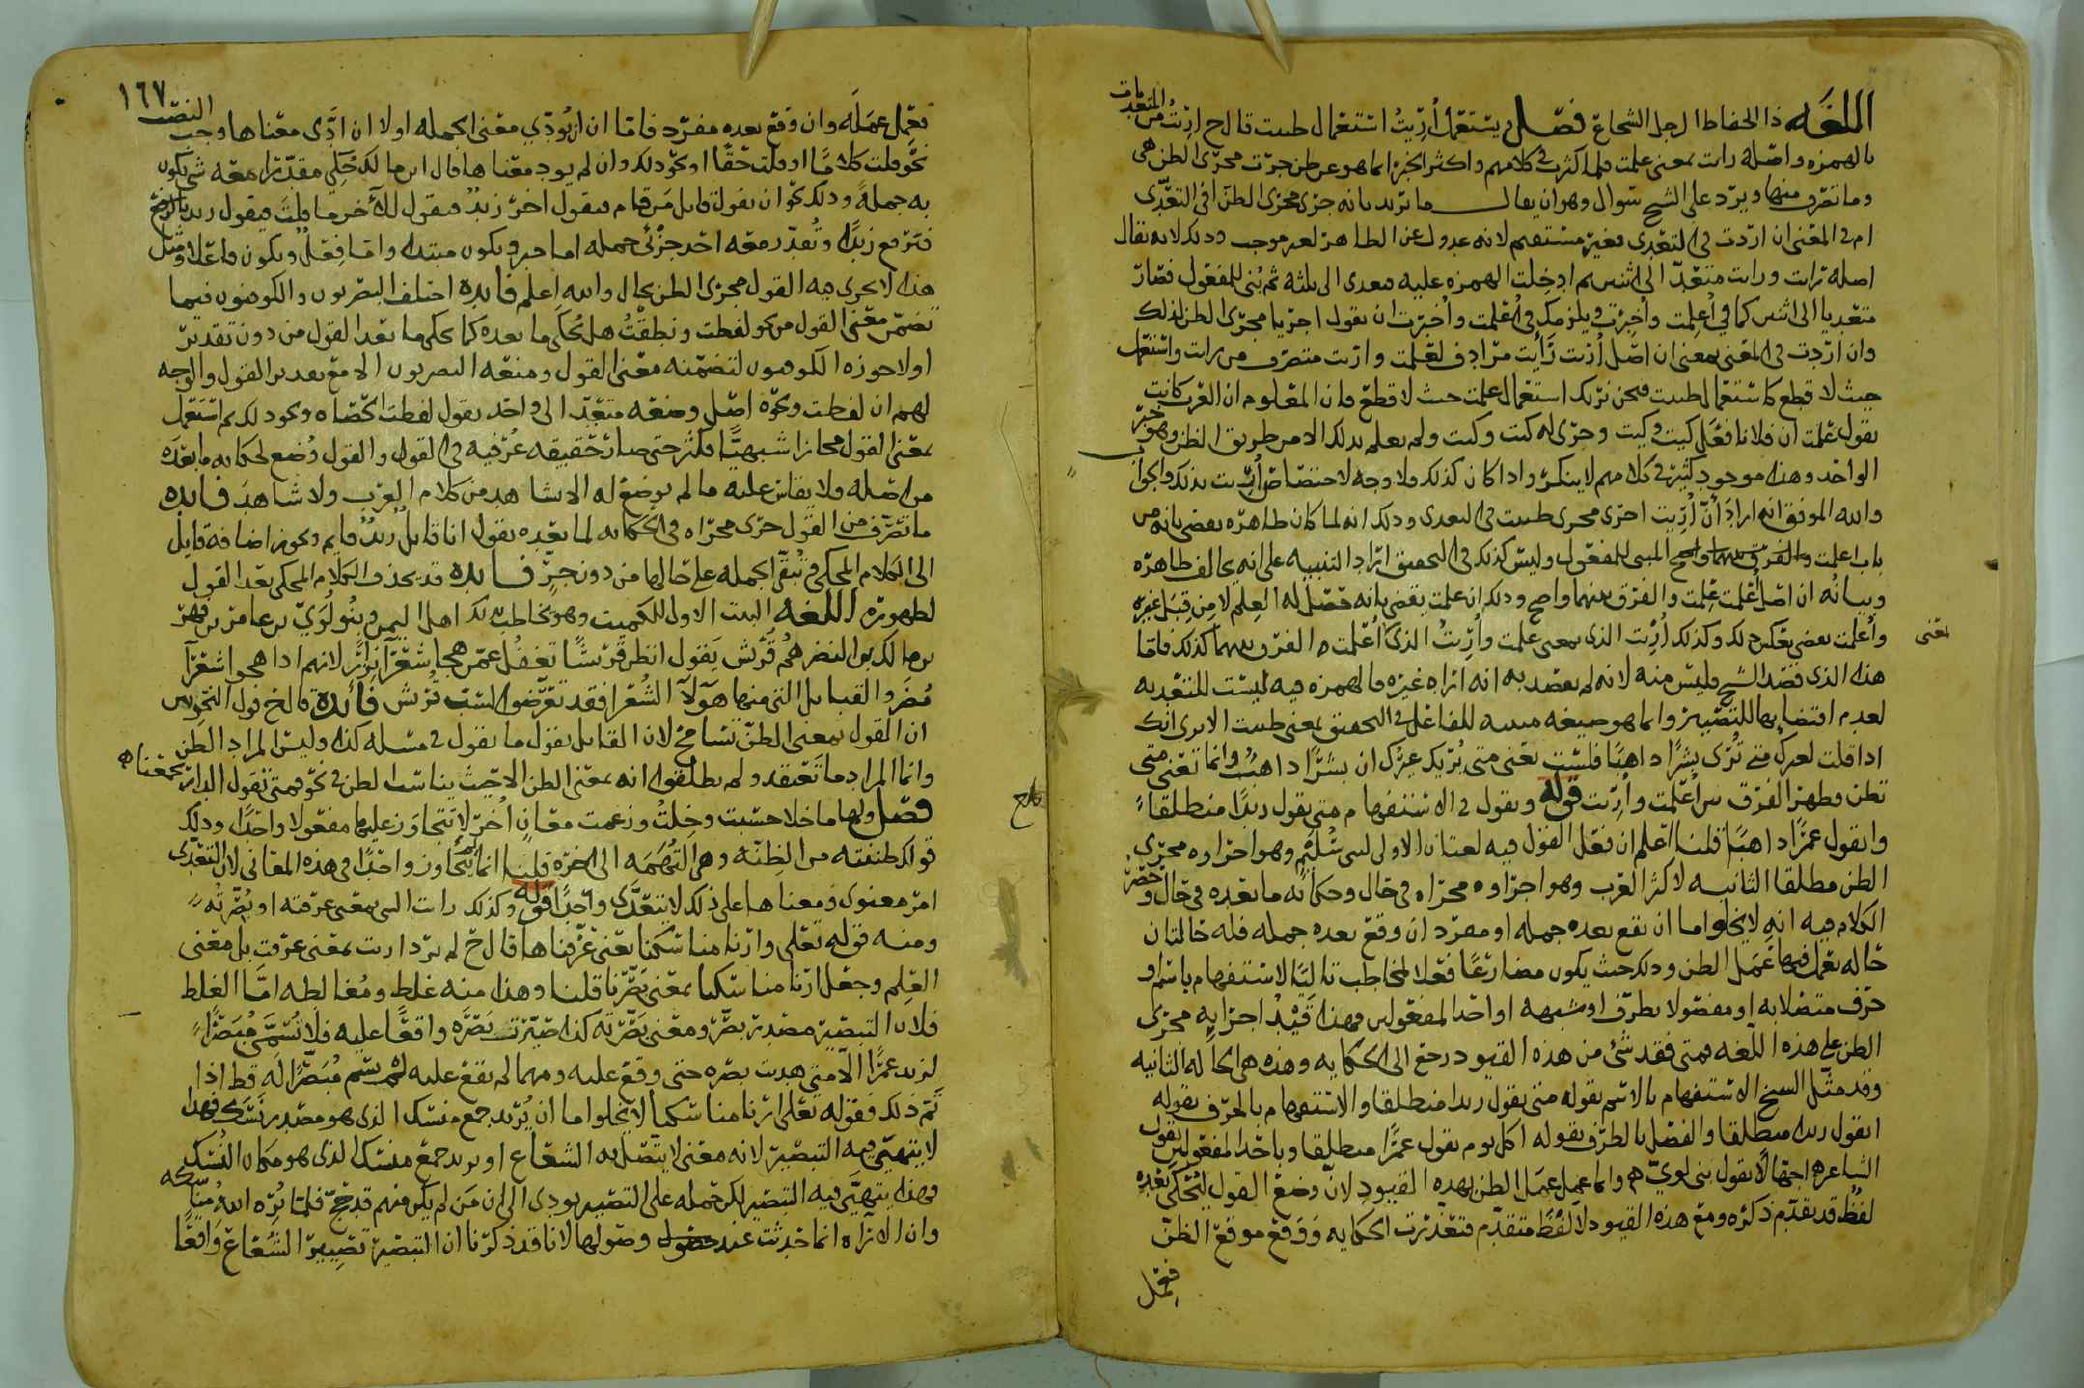 اللغه ذا الحفاظ الرجل الشجاع فصل يستعمل أُرِيتُ استعمال ظننت قال ح اريت من المتعديات
بالهمزه واصله رات بمعنى علمت فلما اكثر في كلامهم واكثر الخبر انما هو عن ظن جرت مجرى الظن هي
وما تصرف منها ويرد على الشيخ سوال وهو ان يقال ما تريد بانه جرى مجرى الظن افي التعدّي
ام في المعنى ان اردت في التعدى فغير مستقيم لانه عدول عن الظاهر لغير موجب وذلك لانه يقال
اصله رات ورات متعدّ الى اثنين ثم ادخلت الهمزه عليه فتعدى الى ثلثه ثم بُني للمفعول فصار
متعديا الى اثنين كما في أُعلمت وأُخبرت ويلزمك في أُعلمت وأُخبرت ان تقول اجريا مجرى الظن لذلك
وان اردت في المعنى بمعنى ان اصل أُريت رَأيت مرادف لعلمت واريت متصرف من رات واستعمل
حيث لا قطع كاستعمال ظننت فنحن نريك استعمال علمت حيث لا قطع فان المعلوم ان العرب كانت
تقول علمت ان فلانا فعل كيت وكيت وجرى له كيت وكيت ولم يعلم بذلك الا من طريق الظن وهو خبر
الواحد وهذا موجود كثير في كلامهم لا ينكر واذا كان كذلك فلا وجه لاختصاص أُريت بذلك والجواب
والله الموفق انه اراد أنّ أُريت اجرى مجرى ظننت في التعدى وذلك انه لما كان ظاهره يقضي بانه من
باب اعلمت المبني للمفعول وليس كذلك في التحقيق اراد التنبيه على انه يخالف ظاهره
وبيانه ان اصل أُعلمت عَلِمت والفرق بينهما واضح وذلك ان علمت يقضي بانه حصل له العِلم لا من قِبَل غيره
وأعلمت يقضي بعكس ذلك وكذلك أُرِيت الذى بمعنى علمت وأُرِيتُ الذى كأُعلمت الفرق بينهما كذلك فاما
هذا الذى قصد الشيخ فليس منه لانه لم يقصد به انه اراه غيره فالهمزه فيه ليست للتعديه
لعدم اقتضايها للتصيير وانما هو صيغه مبنيه للفاعل في التحقيق بمعنى ظننت الا ترى انك
اذا قلت لغيرك متى تُرى بشرًا ذاهبًا فلست تعنى متى يُريك غيرُك ان بشرًا ذاهبٌ وانما تعنى متى
تظن فظهر الفرق بين أُعلمت وأُريت قوله وتقول في الاستفهام متى تقول زيدًا منطلقا
واتقول عمرًا ذاهبًا قلنا اعلم ان فعل القول فيه لغتان الاولى لبني سُلَيْم وهو اجراوه مجرى
الظن مطلقا الثانيه لاكثر العرب وهو اجراوه مجراه في حال وحكايه ما بعده في حال وحصر
الكلام فيه انه لا يخلوا اما ان يقع بعده جمله او مفرد ان وقع بعده جمله فله حالتان
حاله يعمل فيها عَمَل الظن وذلك حيث يكون مضارعًا فعلا لمخاطب تاليًا لاستفهام باسم او
حرف متصلا به او مفصولا بظرف او شبهه او احد المفعولين فهذا قَيْدُ اجرايه مجرى
الظن على هذه اللغه فمتى فقد شئ من هذه القيود رجع الى الحكايه وهذه هي الحاله الثانيه
وقد مثّل الشيخ الاستفهام بالاسم بقوله متى تقول زيدا منطلقا والاستفهام بالحرف بقوله
اتقول زيدا منطلقا والفصل بالظرف بقوله اكل يوم تقول عمرًا منطلقا وباحد المفعولين بقول
الشاعر اجهالا تقول بنى لويّ وانما عمل عَمَل الظن بهذه القيود لانّ وضع القول ليُحكى بعده
لفظ قد تقدّم ذكره ومع هذه القيود لا لفظ متقدّم فتعذرت الحكايه ووقع موقع الظنّ
فعمل
يعنى
١٦٧
فعَمِل عَمَلَه وان وقع بعده مفرد فاما ان يُؤدّي معنى الجمله اولا ان ادّى معناها وجب النصب
نحو قلت كلامًا او قلت حقًّا او نحو ذلك وان لم يود معناها قال ابن مالك حُكِي مقدّرا معه شي يكون
به جملةً وذلك نحو ان يقول قايل مَن قام فيقول اخر زيدٌ فيقول للآخر ما قلتَ فيقول زيد بالرفع
فترفع زيدًا وتُقدّر معه احد جُزئي جمله اما خبر ويكون مبتدا واما فِعلٌ ويكون فاعلا ومثل
هذا لا يجرى فيه القول مجرى الظن بحال والله اعلم فايده اختلف البصريون والكوفيون فيما
تضمّن معنى القول من نحو لفظت ونطقتُ هل يُحكى ما بعده كما يحكى ما بعد القول من دون تقدير
اولا جوزه الكوفيون لتضمّنه معنى القول ومنعه البصريون الا مع تقدير القول والوجه
لهم ان لفظت ونحوه اصل وضعه متعدّ الى واحد تقول لفظت الحصاه ونحو ذلك ثم استعمل
بمعنى القول مجازا شبهيًّا فكثر حتى صار حقيقه عُرفيه في القول والقول وُضع لحكايه ما بعده
من اصله ولا يقاس عليه ما لم يوضع له الا بشاهد من كلام العرب ولا شاهدَ فايده
ما تصرّف من القول جرى مجراه في الحكايه لما بعده تقول انا قايلٌ زيدٌ قايم ويجوز اضافه قايل
الى الكلام المحكي وتُبقّى الجمله على حالها من دون جرّ فايده قد يحذف الكلام المحكي بعد القول
لظهوره اللغه البيت الاول للكميت وهو يخاطب بذلك اهل اليمن وبنو لُوَيّ بن غالب بن فهر
بن مالك بن النضر هُم قُرَيش يقول اتظن قريشًا تغفُل عمّن هجا شعرآ نِزار لانهم اذا هجوا شعرآ
مُضَر والقبايل التي منها هَوُلآ الشُعرا فقد تعرّضوا لسبّ قُريش فايده قال ح قول النحويين
ان القول بمعنى الظنّ تسامح لان القايل يقول ما تقول في مسله كذا وليس المراد الظن
وانما المراد ما تعتقد ولم يطلقوا انه بمعنى الظن الا حيث يناسب الظن في نحو متى تقول الدار تجمعنا ه
فصل ولها ما خلا حسبت وخِلتُ وزعمت معانٍ اُخر لا تتجاوز عليها مفعولا واحدًا وذلك
قولك ظننته من الظِنّه وهي التُهَمَه الى اخره قلنا انما لم تتجاوز واحدًا في هذه المعاني لان التعدّى
امر معنوى ومعناها على ذلك لا يتعدّى واحدًا قوله وكذلك رات التى بمعنى عرفته او بُصّرتُه
ومنه قوله تعلى وارنا مناسكنا يعنى عَرِّفناها قال ح لم يرد ارت بمعنى عرفت بل معنى
العِلم وجعل ارنا مناسكنا بمعنى بَصِّرنا قلنا وهذا منه غلط ومُغالطه امّا الغلط
فلان التبصير مصدر بصّر ومعنى بَصّرته كذا صَيّرت بَصَرَه واقعًا عليه فلا تُسَمّى مُبَصِّرًا
لزيد عمرًا الّا متى هديت بصره حتى وقع عليه ومهما لم يقع عليه لم يسَم مُبَصِّرًا لَه قط اذا
تم ذلك فقوله تعلى ارنا مناسكنا لا يخلوا اما ان يُريد جمع منسك الذى هو مصدر نَسَك فهذا
لا يتهيّى فيه التبصير لانه معنى لا يتصل به الشعاع او يريد جمع منسك الذى هو مكان النُسُك
فهذا يتهيّى فيه التبصير لكن حمله على التبصير يودى الى ان مَن لم يكن منهم قد حجّ فلمّا يُرِه اللهُ مناسكه
وان الاراه انما حدثت عند وصولها لانا قد ذكرنا ان التبصير تصيير الشُعاع وَاقعًا